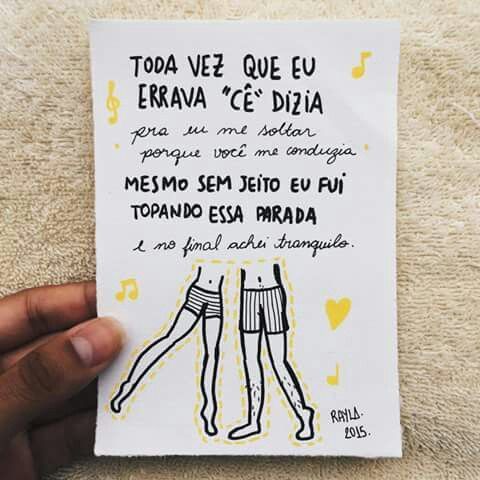 TODA VEZ QUE EU
ERRAVA "CÊ" DIZIA
pra eu me soltar
porque você me conduzia
MESMO SEM JEITO EU FUI
TOPANDO ESSA PARADA
e no final achei tranquilo.
RAYLA.
2015.